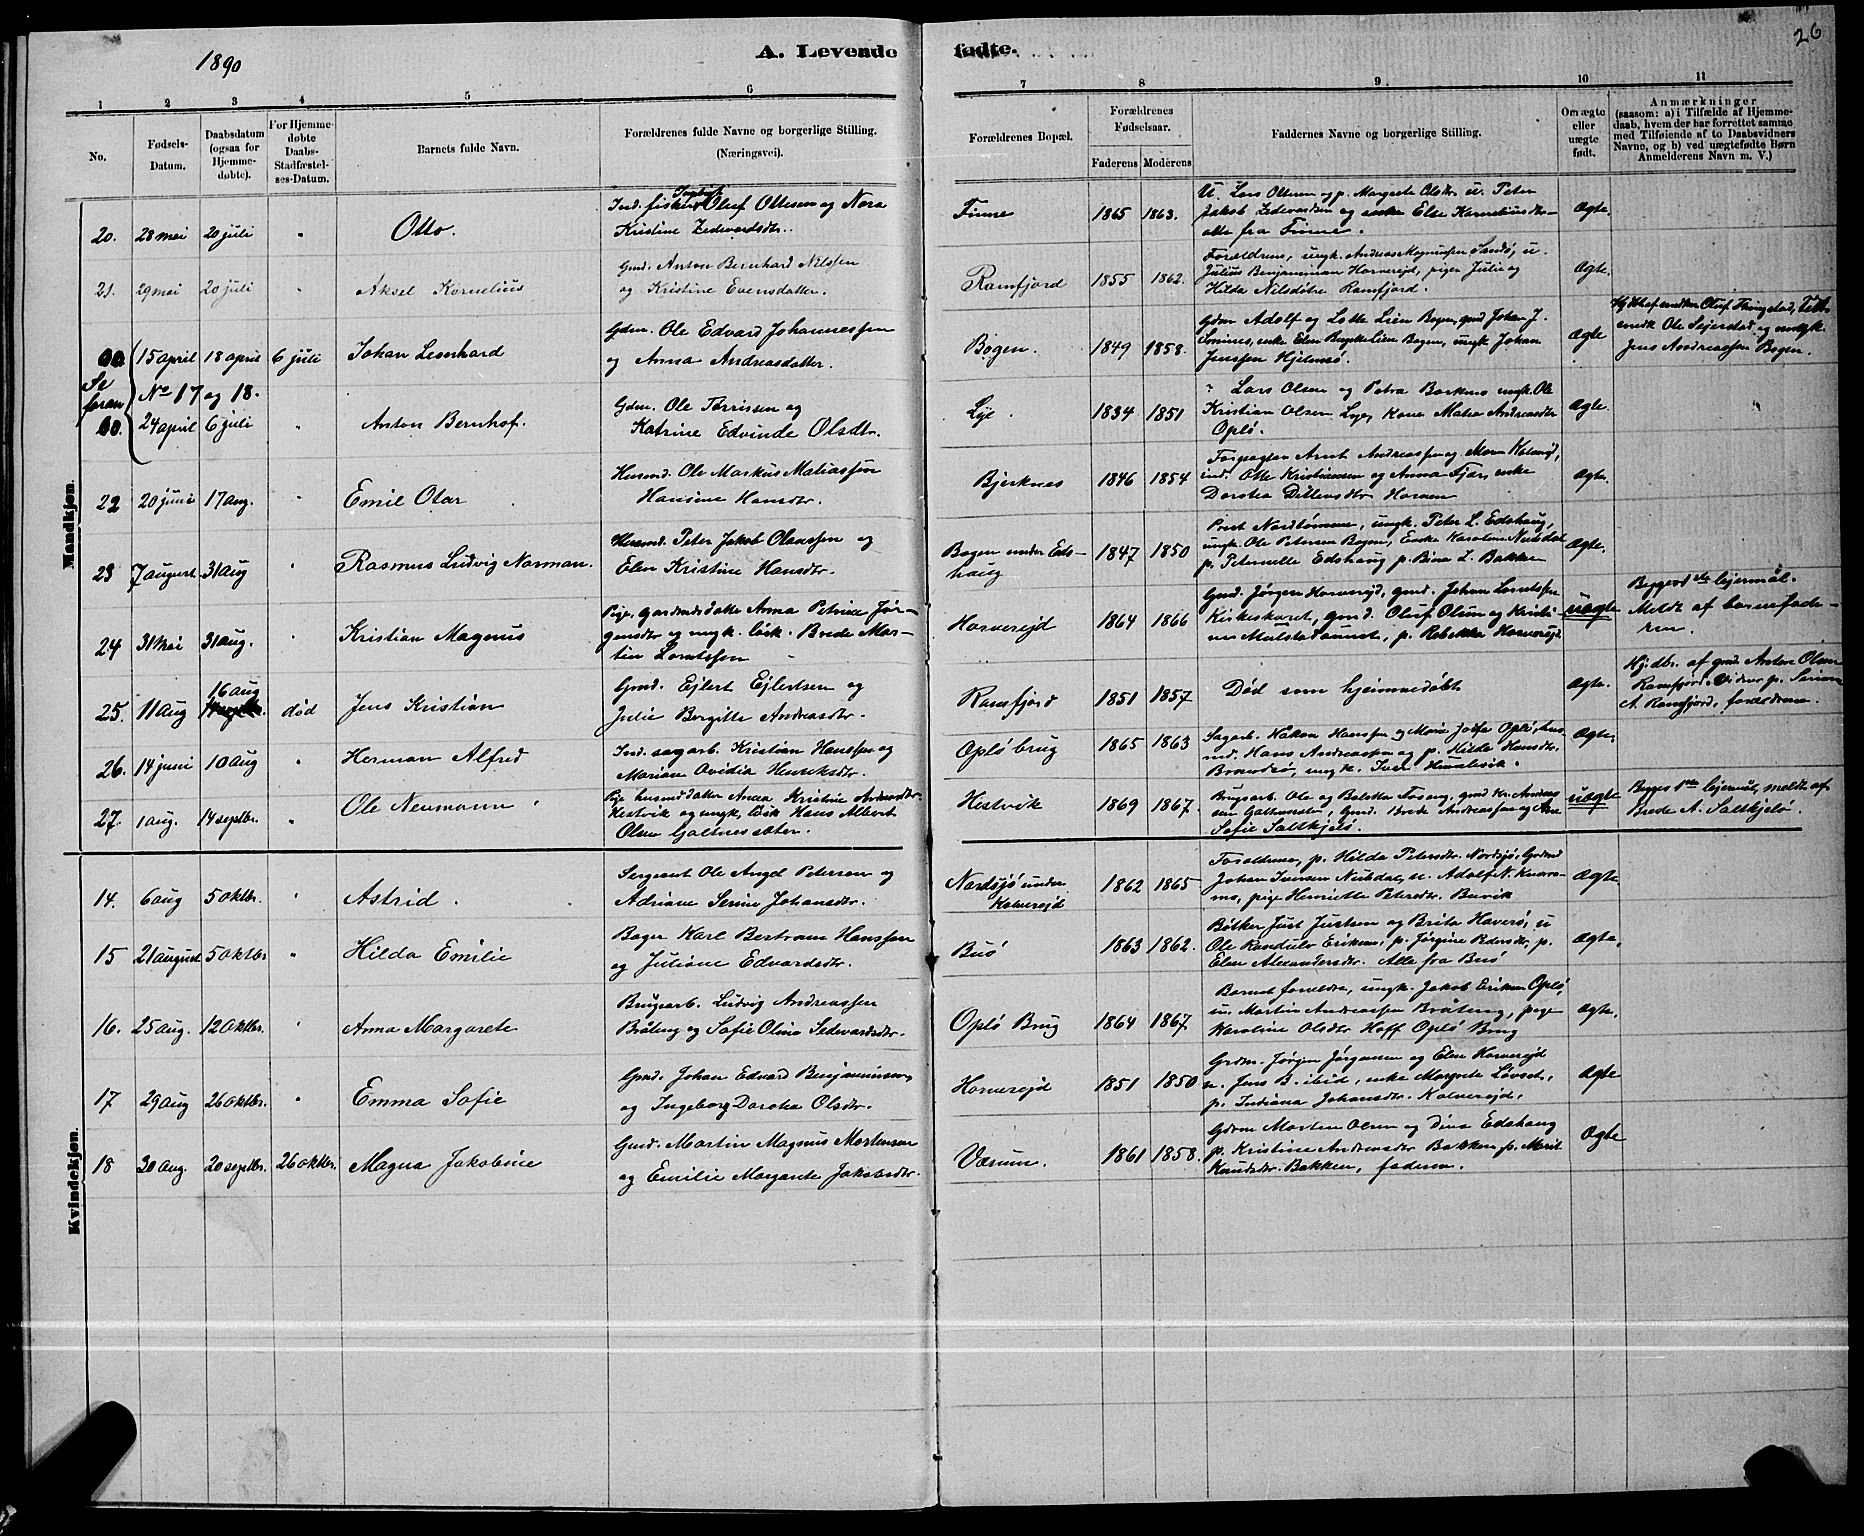 1890
A. Levende fødte.
26
1 2 3 4 5 6 7 8 9. 10 11
No.
Fødsels-Datum.
Daabsdatum (ogsaa for Hjemme-døbte).
For Hjemme-døbte Daabs-Stadfæstel-ses-Datum.
Barnets fulde Navn.
Forældrenes fulde Navne og borgerlige Stilling.
(Næringsvei).
Forældrenes Bopæl.
Forældrenes Fødselsaar.
Faderens Moderens
Faddernes Navne og borgerlige Stilling.
Om ægte eller uægte født.
Anmærkninger
(saasom: a) i Tilfælde af Hjemme-
daab, hvem der har forrettet samme
med Tilføiende af to Daabsvidners
Navne, og b) ved uægtefødte Børn
Anmelderens Navn m. V.)
Mandkjøn.
20. 28 mai 20 juli " Otto.
Ind. fisker Oluf Ottesen og Nora
Kristine Zedevardsdtr.
Finne 1865 1863.
U. Lars Ottesen og p. Margrete Olsdtr. u. Peter
Jakob Zedevardsen og enke Else Korneliusdtr.
alle fra Finne.
Ægte.
21. 29 mai 20 juli " Aksel Kornelius
Gmd. Anton Bernhard Nilssen
og Kristine Evensdatter.
Ramfjord 1855 1862.
Forældrene, ungk. Andreas Magnussen Sandø, u.
Julius Benjaminsen Horverejd, piger Julie og
Hilda Nilsdøtre Ramfjord.
Ægte.
15 april 18 april 6 juli Johan Leonhard
Gdm. Ole Edvard Johannessen
og Anna Andreasdatter.
Bogen. 1849 1858.
Gdm Adolf og Lotte Lien Bogen, gmd Johan J.
enke Elen Lien Bogen, ungk Johan
Jenssen Hjelmsø.
Ægte
Hj. døbt af Oluf Tringstad, Tilst.
Ole Sejerstad og ungk.
Jens Andreassen Bogen.
Se foran No 17 og 18.
24 april 6 juli " Anton Bernhof.
Gdm. Ole Tørrissen og
Katrine Edvinde Olsdtr.
Lye. 1834 1851
Lars Olsen og Petra Barknes ungk. Ole
Kristian Olsen Lye, Kone Matea Andreasdtr
Oplø.
Ægte.
22 20 juni 17 aug. " Emil Otar
Husmd. Ole Markus Matiassen
Hansine Hansdtr.
Bjerknes 1846 1854
Forpagter Arnt Andreassen og Maren Kolsrø,
ind. Otte Kristiansen og Anna Fjær, enke
Dorotea Ditlevsdtr. Horven
Ægte.
23 7 august. 31 aug " Rasmus Ludvig Norman.
Husmd. Peter Jakob Olaussen og
Elen Kristine Hansdtr.
Bogen under Eds-
haug
1847 1850
Prest Nordtømme, ungk. Peter L. Edshaug,
ungk. Ole Petersen Bogen, Enke Karoline Neubdal
p. Peternelle Edshaug p. Bina L. Bakken
Ægte.
24 31 Mai 31 aug. " Kristian Magnus
Pige, gardmdsdatter Anna Petrine Jør-
gensdtr og ungk. løsk. Brede Mar-
tin Lorntssen
Horverejd 1864 1866
Gmd. Jørgen Horverejd, gmd. Johan Lorntssen
Kirkeskaret, gmd. Oluf Olsen og Kristi-
ne Mulstadaunet, p. Rebekka Horverejd.
uægte
Begges 1ste lejermål.
Meldt af barnefade-
ren.
25. 11 aug 16 aug død Jens Kristian
Gmd. Ejlert Ejlertsen og
Julie Bergitte Andreasdtr.
Ramfjord 1851 1857
Død som hjemmedøbt
Ægte.
Hj. dbt. af gmd. Anton Olsen
Ramfjord. Vidner p. Serine
A. Ramfjord, forældrene.
26. 14 juni 10 aug " Herman Alfred
Ind. sagarb. Kristian Hanssen og
Marian Ovidia Henriksdtr.
Oplø brug 1865 1863
Sagarb. Hakon Hanssen og Marie Oplø, hus
md. Hans Andreassen og p. Hilda Hansdtr.
Brandsø, ungk. Iver
Ægte.
27. 1 aug. 14 septbr. " Ole Neumann
Pige husmdsdatter Anna Kristine Andreasdtr.
Hestvik og ungk, løsk Hans Albert
Olsen Galtnessæter.
Hestvik 1869 1867.
Brugsarb. Ole og Beletta Fosseng, gmd Kr. Andreas
sen gmd. Brede Andreassen og Ane
Sofie Saltkjelø.
uægte
Begges 1ste lejermål, meldt af
Brede A. Saltkjelø.
Kvindekjøn.
14. 6 aug 5 oktbr. " Astrid.
Sergeant Ole Angel Petersen og
Adriane Serine Johansdtr.
Nordsjø under
Kolverejd
1862 1865
Forældrene, p. Hilda Petersdtr. Nordsjø, Grdmd
Johan Iversen Neubdal, u. Adolf N.
pige Henriette Petersdtr. Buvik
Ægte.
15 21 august 5 oktbr " Hilda Emilie
Bager Karl Bertram Hanssen
og Juliane Edvardsdtr.
Buø 1863 1862.
Bøtker Just Justsen og Brita Haverø, u
Ole Randulv Eriksen, p. Jørgine Pedersdtr. p.
Elen Alexandersdtr. Alle fra Buø
Ægte.
16. 25 aug. 12 oktbr. " Anna Margarete
Brugsarb. Ludvig Andreassen
Bråteng og Sofie Olina Sedevardsdtr.
Oplø Brug 1864 1867
Barnets forældre, ungk. Jakob Eriksen Oplø,
u. Martin Andreassen Bråteng, pige
Karoline Olsdtr Hoff Oplø Brug
Ægte.
17 29 aug 26 oktbr. " Emma Sofie
Gmd. Johan Edvard Benjaminsen
og Ingeborg Dorotea Olsdtr.
Horverejd 1851 1850
Grdm. Jørgen Jørgensen og Elen Horverejd
u. Jens B. ibid, enke Margrete Løvset,
p. Indiana Johansdtr. Kolverejd.
Ægte
18 30 aug. 20 septbr. 26 oktbr. Magna Jakobine
Gmd. Martin Magnus Mortensen
og Emilie Margrete Jakobsdtr.
Værum. 1861 1858.
Gdm Morten Olsen og Dina Edshaug
p. Kristine Andreasdtr Bakken p. Marit
Knudsdtr. Bakken, faderen.
Ægte